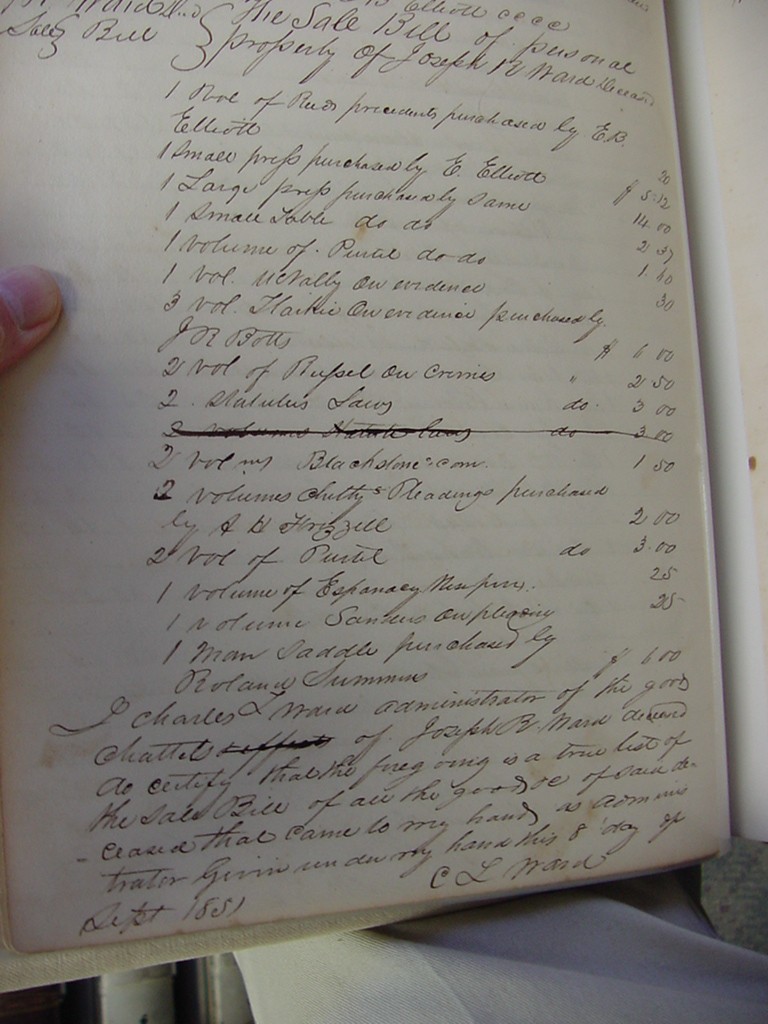 B Elliott cccc
Ward
Sale Bill } The Sale Bill of personal
property of Joseph R Ward Deceased
1 Vol of Reeds precedents purchased by E.B.
Elliott 20
1 Small press purchased by E. Elliott $ 5.12
1 Large press purchased by Same 14.00
1 Small Table do do 2 37
1 volume of Pirtle do do 1.60
1 vol. McNally on evidence 30
3 vol. Starkie On evidence purchased by
J R Botts $ 6 00
2 vol of Russel on crimes " 2 50
2 Statutes Laws do. 3 00
2 volumes Statute laws do 3.00
2 vol Blackstone com. 1 50
2 volumes Chitty's Pleadings purchased
by A H Frizzell 2 00
2 vol of Pirtle do 3.00
1 volume of Espanacy 25
1 volume Sanders on pleading 25
1 man Saddle purchased by
Roland Summers $ 6 00
I Charles L Ward administrator of the good
chattel & effects of Joseph R. Ward deceased
do certify that the foregoing is a true list of
the Sale Bill of all the goods &c of said de-
-ceased that came to my hands as adminis
trator Given under my hand this 8 day of
Sept 1851 C L Ward